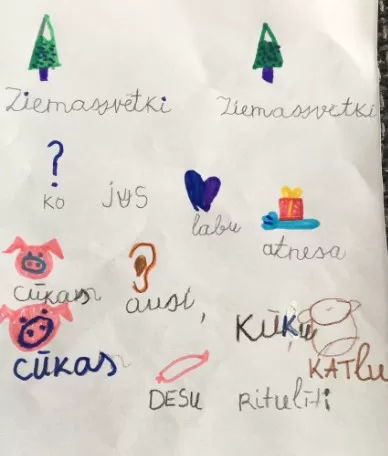 Ziemassvētki Ziemassvetki
? ko jūs labu atnesa
cūkas ausi,
cūkas kūķu KATLu
DESU Ritulīti